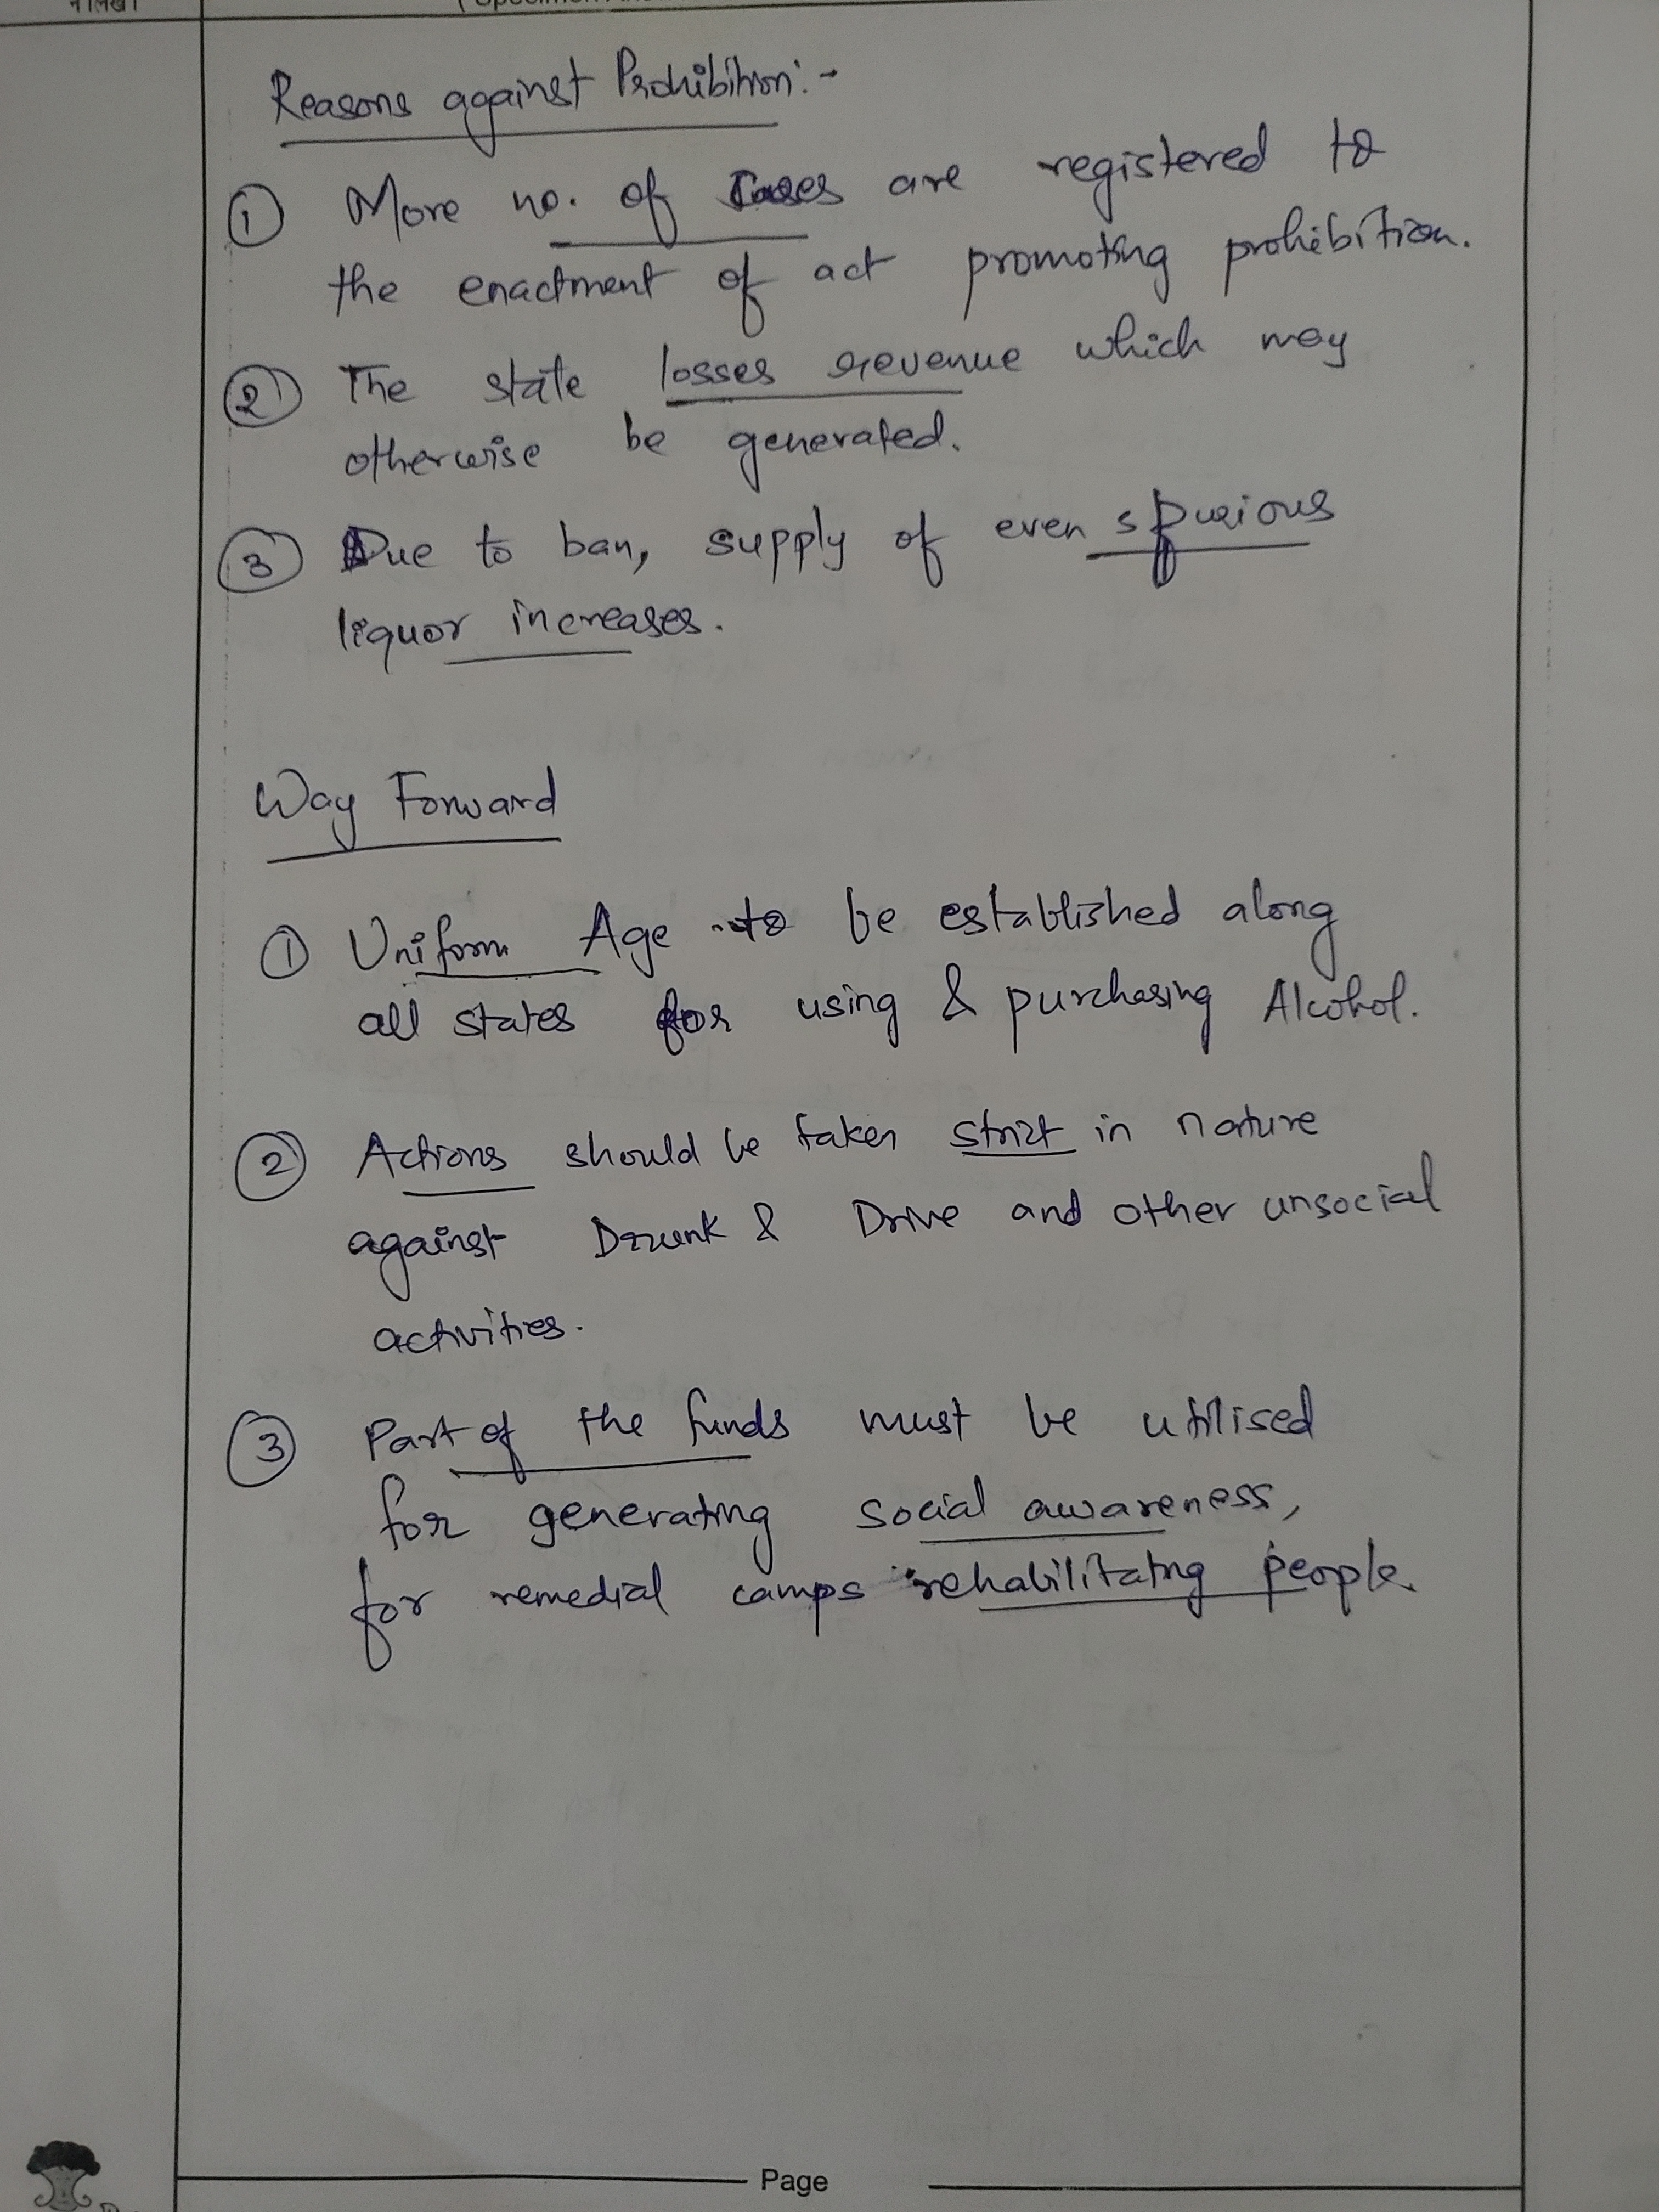 Reasons against Prohibition:-
① More no. of Cases are registered to
the enactment of act promoting prohibition.
② The state losses revenue which may
otherwise be generated.
③ Due to ban, supply of even spurious
liquor increases.
Way Forward
① Uniform Age to be established along
all states for using & purchasing Alcohol.
② Actions should be taken strict in nature
against Drunk & Drive and other unsocial
activities.
③ Part of the funds must be utilised
for generating social awareness,
for remedial camps rehabilitating people.
Page